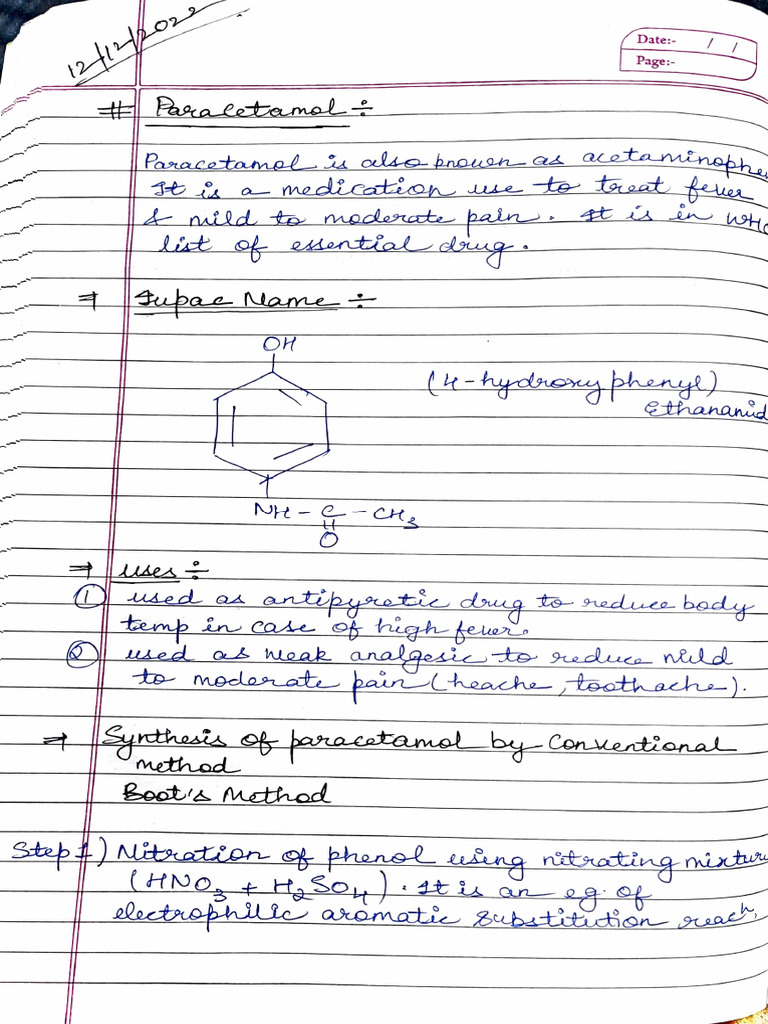 12/12/2022
Date:- / /
Page:-
# Paracetamol ÷
Paracetamol is also known as acetaminophe
It is a medication use to treat fever
& mild to moderate pain. It is in WHO
list of essential drug.
⇒ Iupac Name ÷
OH
(4-hydroxy phenyl)
Ethanamid
NH - C - CH3
O
⇒ uses ÷
① used as antipyretic drug to reduce body
temp in case of high fever.
② used as weak analgesic to reduce mild
to moderate pain (heache, toothache).
⇒ Synthesis of paracetamol by Conventional
method
Boot's Method
Step 1) Nitration of phenol using nitrating mixture
(HNO3 + H2SO4). It is an eg. of
electrophilic aromatic substitution reach,